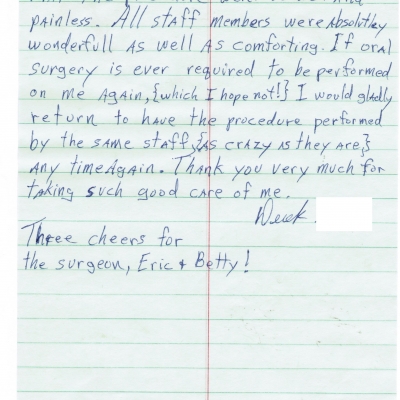 painless. All staff members were Absolutley
wonderfull As well As comforting. If oral
surgery is ever required to be performed
on me Again, {which I hope not!} I would gladly
return to have the procedure performed
by the same staff, {as crazy as they are,}
Any time Again. Thank you very much for
taking such good care of me.
Derek
Three cheers for
the surgeon, Eric + Betty!